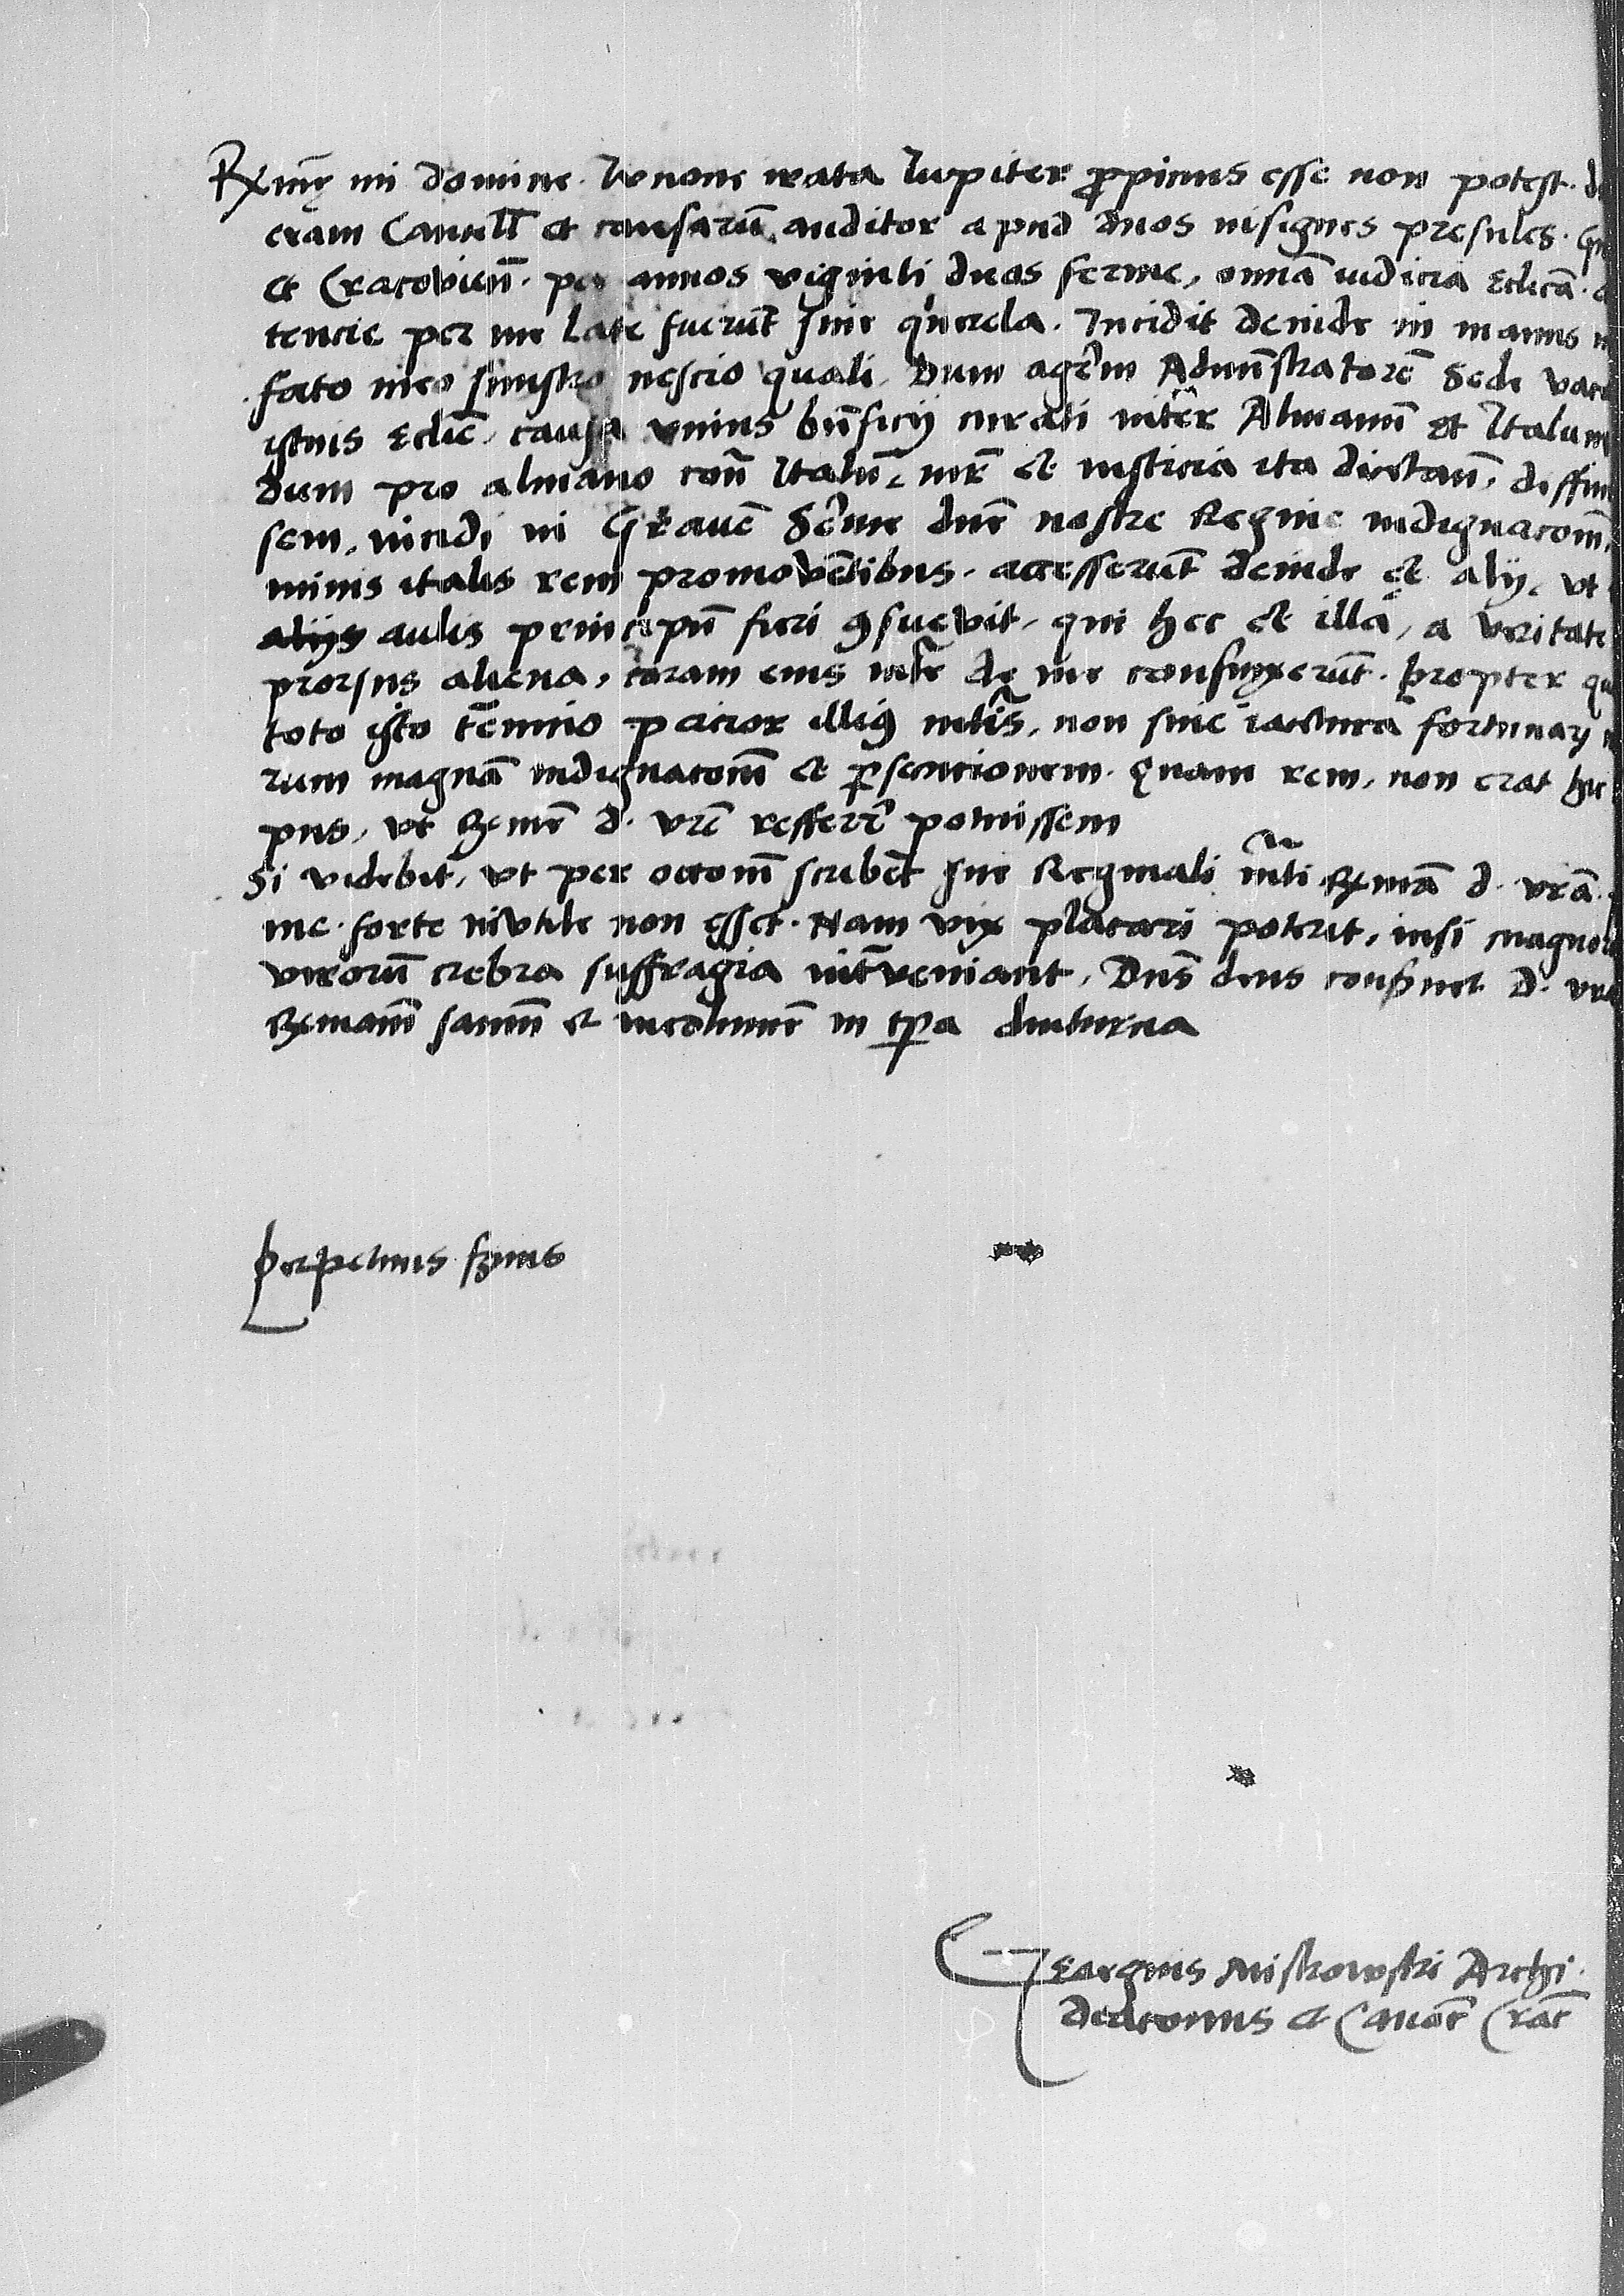 Rxmē mi domine. Iunone irata Iupiter propicius esse non potest.
eram Cancell et causarū auditor apud duos insignes presules.
et Cracovieñ. per annos viginti duos ferme, omnia iudicia Ecclicā.
tencie per me late fuerūt sine querela. Incidit deinde in manus
fato meo sinistro nescio quali. Dum agerem Administratorē Sede
istius Ecclie. causa unius bñficij curati inter Almanū et Italum
dum pro almano cont Italū, iure et iusticia ita dictañ,
sem, incidi in Gravē Serme dne nostre Regine indignacoem
minis italis rem promovētibus. accesserūt deinde et alij, ut
aliis aulis principū fieri consuevit, qui hec et illa, a veritate
prorsus aliena, coram eius mte de me confinxerūt. Propter
toto isto termino pacior illius mtis, non sine iactura fortunarum
rum magnā indignacoem et persecucionem. Quam rem, non erat
pus, ut Rxme d. vre refferre potuissem
Si videbit, ut per occoem scribet sue Reginali mti Rxma d. vra.
me. forte inutile non esset. Nam vix placari poterit, nisi
virorū crebra suffragia interveniant. Dns deus conservet d.
Rxmam sanam et incolumem in tpa diuturna
Perpetuus servus
Georgius Miskowski Archi
deaconus et Canoc Crac